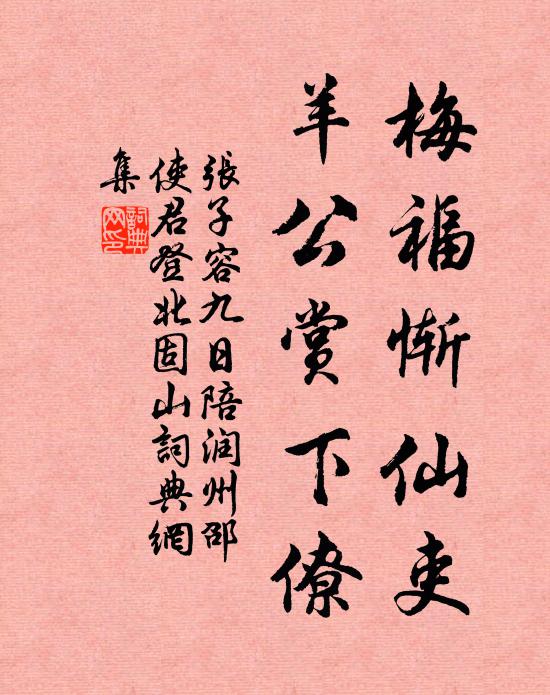 梅福惭仙吏
羊公赏下僚
張子容九日陪润州邵
使君登北固山詞典網
集
詞典网印